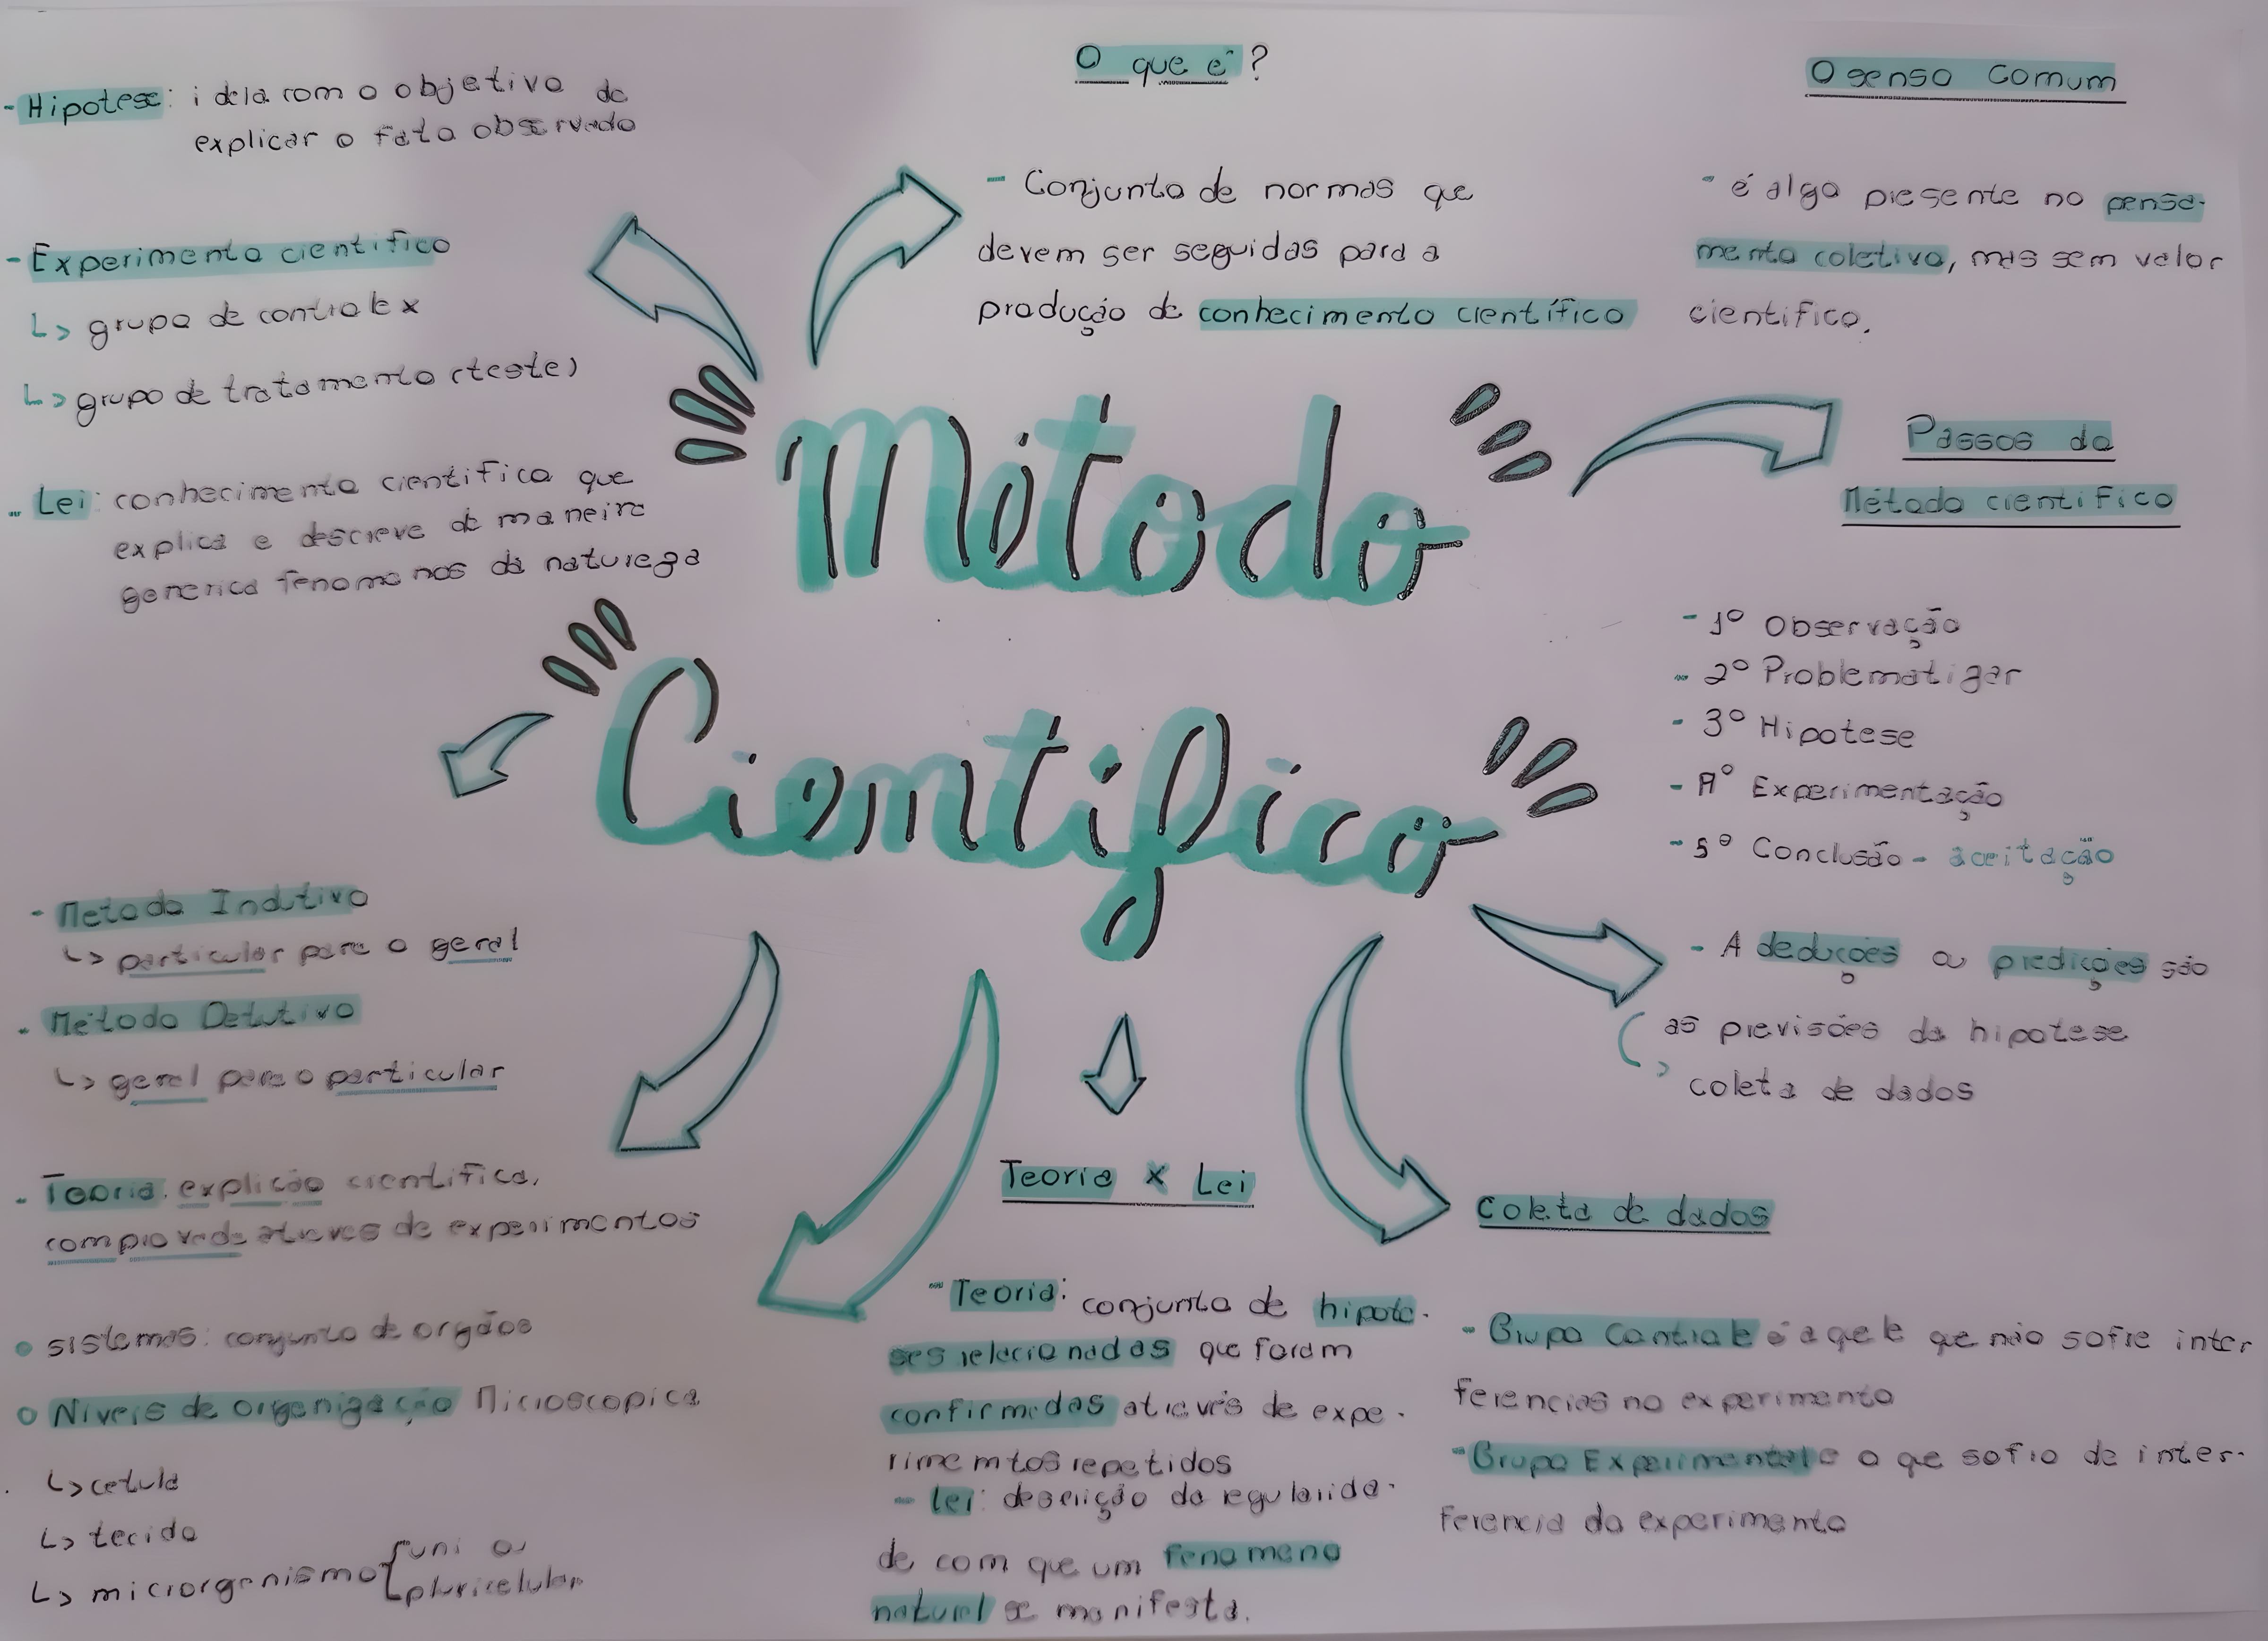 - Hipotese: ideia com o objetivo de
explicar o fato observado
- Experimento cientifico
↳ grupo de controle x
↳ grupo de tratamento (teste)
- Lei: conhecimento cientifico que
explica e descreve de maneira
generica fenomenos da natureza
O que é?
- Conjunto de normas que
devem ser seguidas para a
produção de conhecimento científico
O senso comum
- é algo presente no pensa-
mento coletivo, mas sem valor
cientifico.
Método
Cientifico
Passos do
Método cientifico
- 1º Observação
- 2º Problematizar
- 3º Hipotese
- 4º Experimentação
- 5º Conclusão - aceitação
- A deduções ou predições são
as previsões da hipotese
↳ coleta de dados
- Metodo Indutivo
↳ particular para o geral
- Método Detutivo
↳ geral para o particular
- Teoria: explição cientifica,
comprovada atraves de experimentos
o sistemas: conjunto de orgãos
o Níveis de organização Microscopica
↳ celula
↳ tecido
↳ microrganismo { uni ou
pluricelular
Teoria x Lei
- Teoria: conjunto de hipote-
ses relacionadas que foram
confirmadas através de expe-
rimentos repetidos
- Lei: descrição da regularida-
de com que um fenomeno
natural se manifesta.
Coleta de dados
- Grupo Controle é aqele que não sofre inter
ferencias no experimento
- Grupo Experimental é o qe sofro de inter-
ferencia do experimento